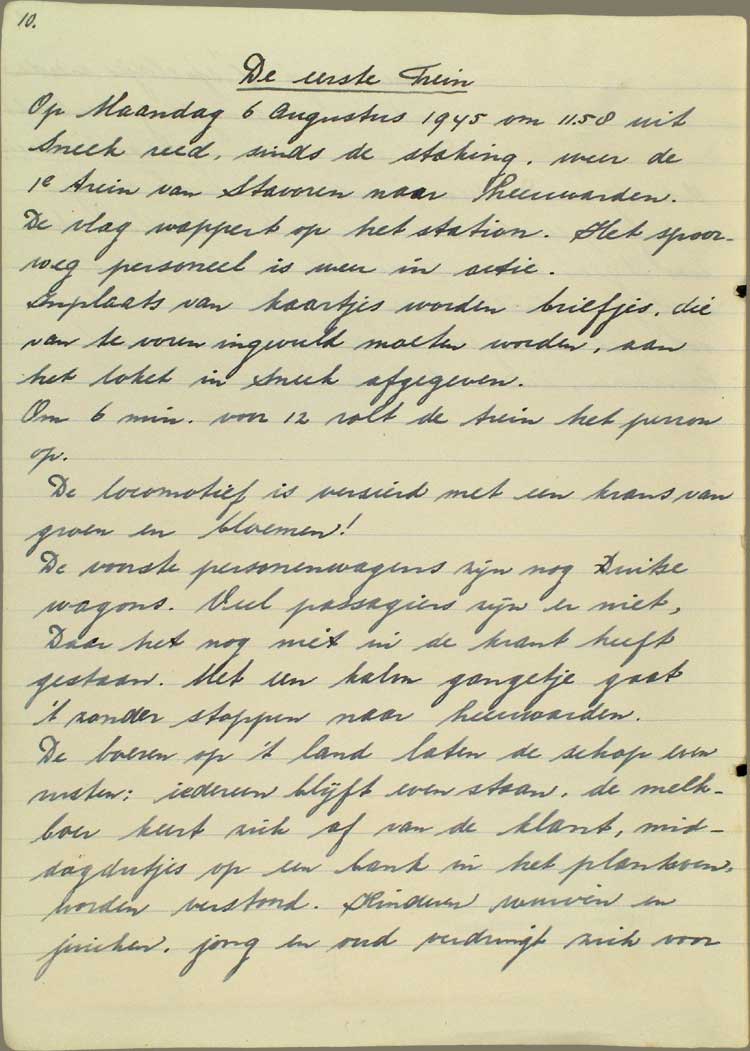 10.
De eerste Trein
Op Maandag 6 Augustus 1945 om 11.58 uit
Sneek reed, sinds de staking, weer de
1e trein van Stavoren naar Leeuwarden.
De vlag wappert op het station. Het spoor-
weg personeel is weer in actie.
Inplaats van kaartjes worden briefjes, die
van te voren ingevuld moeten worden, aan
het loket in Sneek afgegeven.
Om 6 min. voor 12 rolt de trein het perron
op.
De locomotief is versierd met een krans van
groen en bloemen!
De voorste personenwagens zijn nog Duitse
wagons. Veel passagiers zijn er niet,
Daar het nog niet in de krant heeft
gestaan. Met een kalm gangetje gaat
't zonder stoppen naar Leeuwarden.
De boeren op 't land laten de schop even
rusten; iedereen blijft even staan, de melk-
boer keert zich af van de klant, mid-
dagdutjes op een bank in het plantsoen,
worden verstoord. Kinderen wuiven en
juichen, jong en oud verdringt zich voor